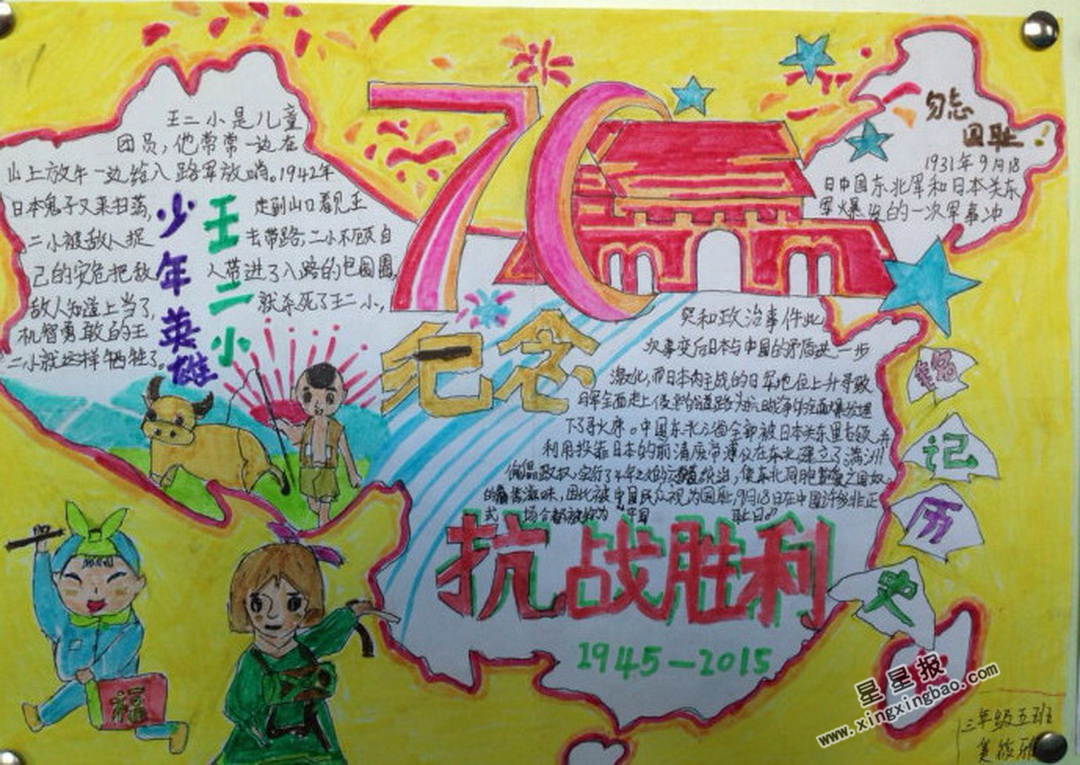 王二小是儿童
团员，他常常一边在
山上放牛一边给八路军放哨。1942年
日本鬼子又来扫荡，走到山口看见王
二小被敌人捉去带路，二小不顾自
己的安危把敌人带进了八路的包围圈，
敌人知道上当了，就杀死了王二小，
机智勇敢的王
二小就这样牺牲了。
少年英雄
王二小
70
纪念
抗战胜利
1945—2015
勿忘
国耻！
1931年9月18
日中国东北军和日本关东
军爆发的一次军事冲
突和政治事件此
次事变后日本与中国的矛盾进一步
激化，而日本内主战的日军地位上升导致
日军全面走上侵华的道路为抗战争的全面爆发埋
下了火序。中国东北三省全部被日本关东军占领，并
利用投靠日本的前清废帝溥仪在东北建立了满洲
傀儡政权，实行了14年之久的统治，使东北同胞
滋味，因此被中国民众视为国耻，9月18日在中国许多非正
式场合都被称为"中国耻日"
记
历
史
三年级五班
星星报
www.xingxingbao.com
福